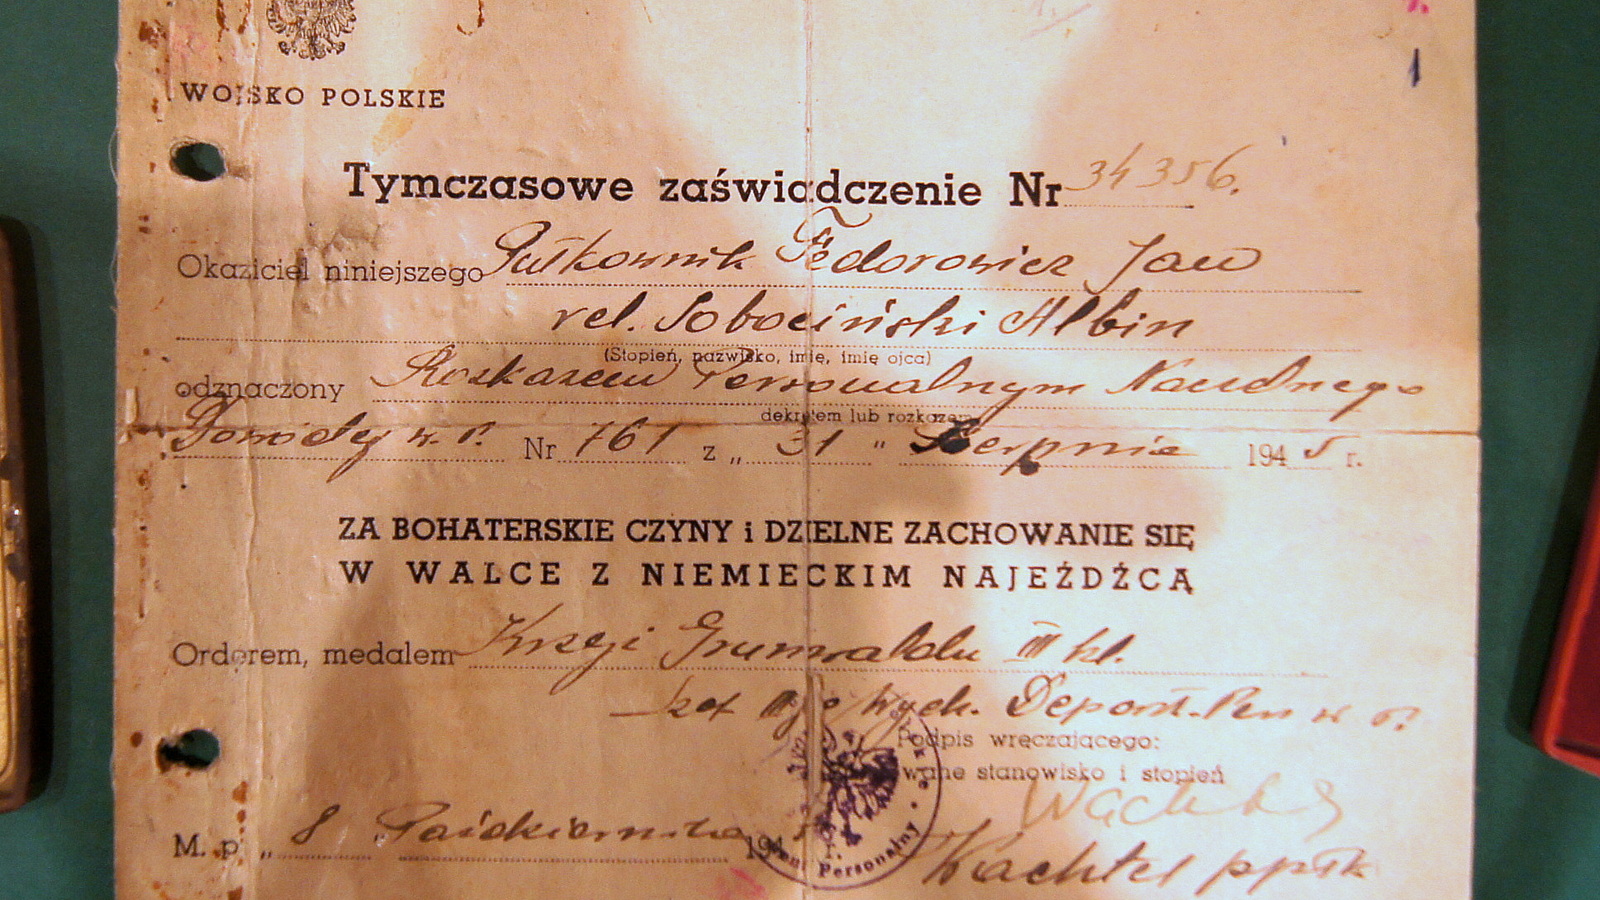 WOJSKO POLSKIE
Tymczasowe zaświadczenie Nr 34356.
Okaziciel niniejszego Pułkownik Fedorowicz Jan
vel. Sobociński Albin
(Stopień, nazwisko, imię, imię ojca)
odznaczony Rozkazem Personalnym Naczelnego
dekretem lub rozkazem
Dowódcy W.P. Nr 761 z „ 31 " Sierpnia 1945 r.
ZA BOHATERSKIE CZYNY i DZIELNE ZACHOWANIE SIĘ
W WALCE Z NIEMIECKIM NAJEŹDŹCĄ
Orderem, medalem Krzyż Grunwaldu III kl.
Depart. Pers W.P.
Podpis wręczającego:
stanowisko i stopień
M. p. „ 8 " Października 194
Personalny
Wachtel ppłk